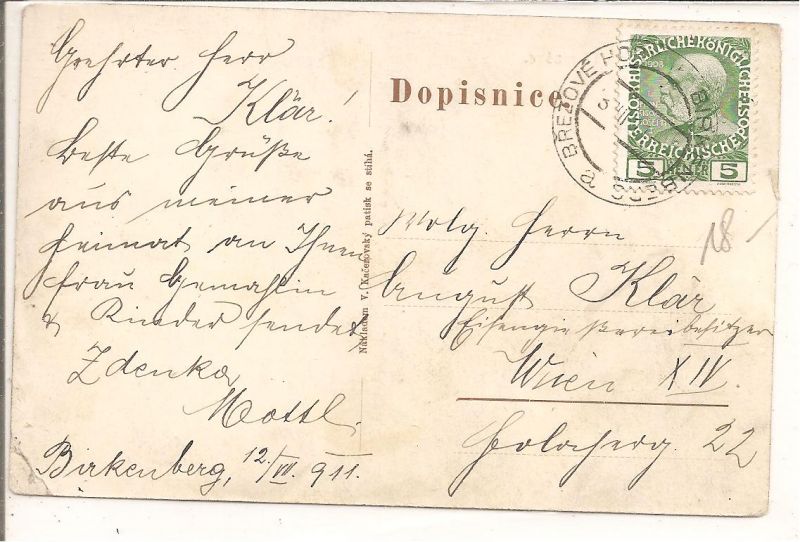 Geehrter Herr
Klär!
Beste Grüße
aus meiner
Heimat an Ihnen
Frau Gemahlin
& Kinder sendet
Zdenka
Mottl.
Birkenberg, 12./VII. 911.
Nákladem V. Kačerovský patisk se stíhá.
Dopisnice
BŘEZOVÉ HORY
BIRKENBERG
a
1908
KAISERLICHE KÖNIGLICHE
ÖSTERREICHISCHE POST
5 5
18
Wolg. Herrn
August Klär
Eisengießereibesitzer
Wien XIV.
22